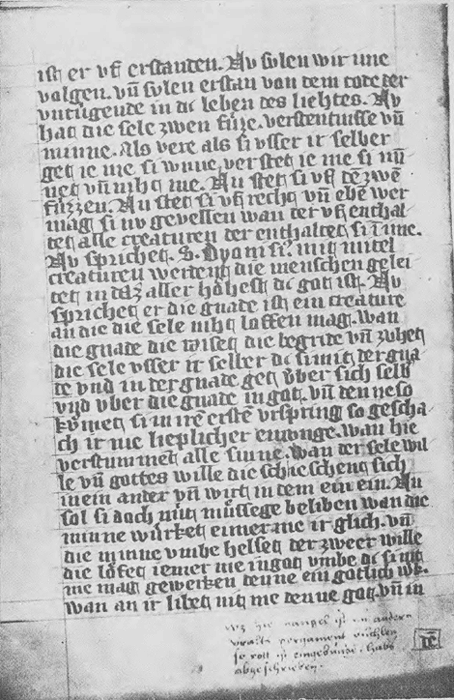 ist er vf erstanden. Nv svlen wir ime
volgen. vn̄ svlen erstan von dem tode der
vntugende in dc leben des liehtes. Nv
hat die sele zwen fu̍ze. verstentnisse vn̄
minne. Als vere als si vsser ir selber
get ie me si minne, verstet ie me si min
net vn̄ niht me. Nu stet si vf dē zwē
fu̍zzen. Nu stet si vf reht vn̄ ebē wer
mag si nv gevellen wan der vf enthal
tet alle creaturen der enthaltet si inne.
Nv sprichet. S. Dyonisi9. mit mitel
creaturen werdent die menschen gelei
tet in daz aller höhest dc got ist. Nv
sprichet er die gnade ist ein creature
an die die sele niht loffen mag. wan
die gnade die wiset die begirde vn̄ zuhet
die sele vsser ir selber dc si mit der gna
de vnd in der gnade get v̍ber sich selb
vnd vber die gnade in got. vn̄ denne so
kv̍met si in irē erstē vrspring so gescha
ch ir nie lieplicher einvnge. wan hie
verstummet alle sinne. wan der sele wil
le vn̄ gottes wille die schieschent sich
in ein ander vn̄ wirt in dem ein ein. Nu
sol si doch nüt müssege beliben wan die
minne wu̍rket eimer me ir glich. vn̄
die minne vmbe helset der zweer wille
die löfet iemer me in got vmbe dc si nit
me mag gewerken denne ein gotlich w̍k.
wan an ir libet nit me denne got. vn̄ in
hie mangel ist ein andern
pergament
so roll ist eingebunde. habs
abgeschrieben.